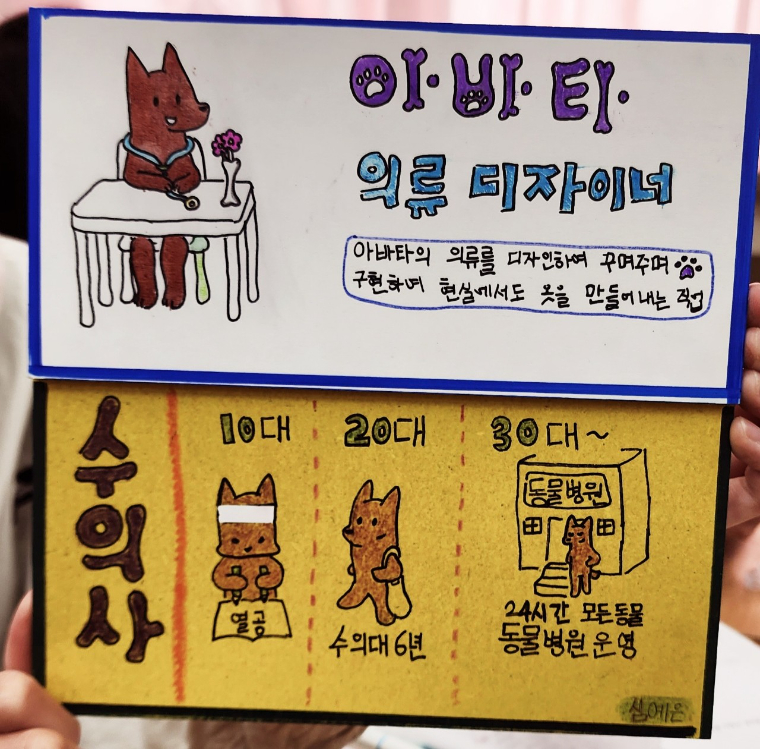 아·바·타·
의류 디자이너
아바타의 의류를 디자인하여 꾸며주며
구현하며 현실에서도 옷을 만들어내는 직업
수의사
10대
20대
30대~
열공
동물병원
수의대 6년
24시간 모든동물
동물병원 운영
심예은